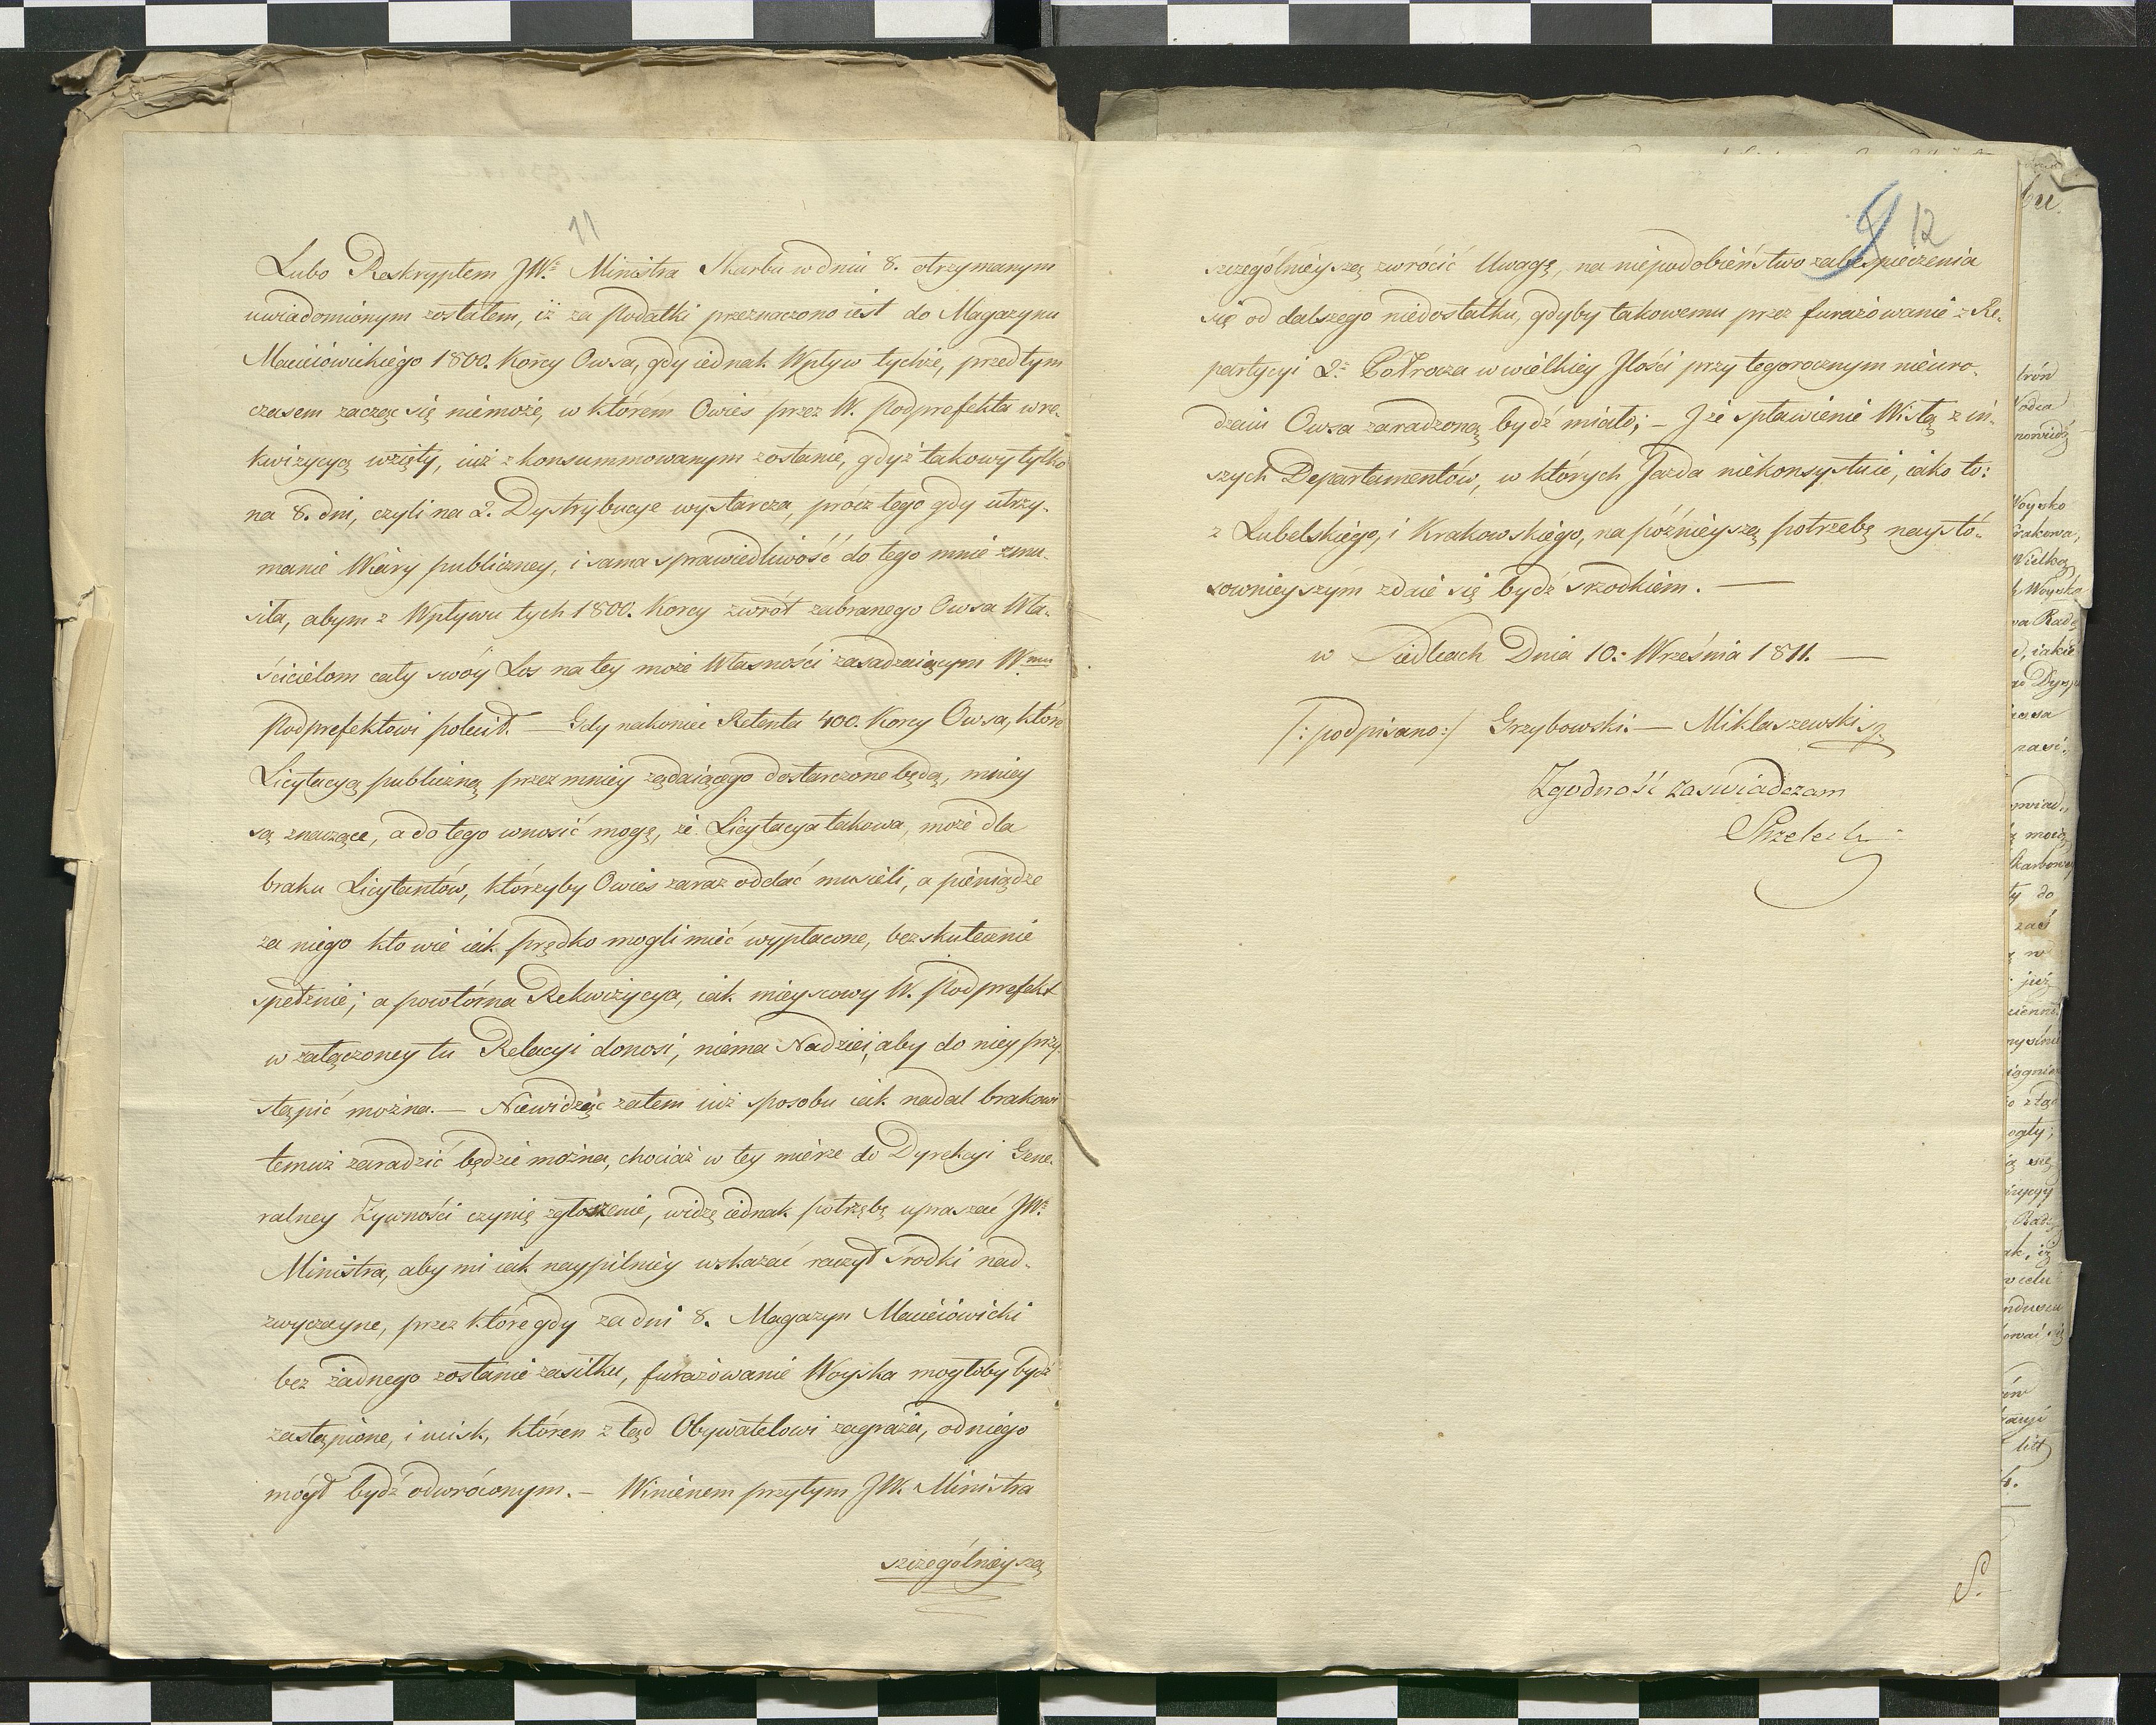 11
Lubo Reskryptem JWº Ministra Skarbu w dniu 8. otrzymanym
uwiadomionym zostałem, iż za podatki przeznaczono iest do Magazynu
Macieiowickiego 1800. Korcy Owsa, gdy iednak Wpływ tychże, przed tym
czasem zacząc się niemoże, w którém Owies przez W. Podprefekta w re-
kwizycyą wzięty, iuż skonsummowanym zostanie, gdyż takowy tylko
na 8. dni, czyli na 2. Dystrybucye wystarcza, prócz tego gdy utrzy-
manie Wiary publiczney, i sama sprawiedliwość do tego mnie zmu-
siła, abym z Wpływu tych 1800. Korcy zwrót zabranego Owsa Wła-
ścicielom cały swóy Los na tey może Własności zasadzaiącym Wmu
Podprefektowi polecił. — Gdy nakoniec Retenta 400. Korcy Owsa, które
Licytacyą publiczną przez mniey żądaiącego dostarczone będą, mniey
są znaczące, a do tego wnosić mogę, że Licytacya takowa, może dla
braku Licytantów, którzyby Owies zaraz oddać musieli, a pieniądze
za niego kto wie iak prędko mogli mieć wypłacone, bezskutecznie
spełznie; a powtórna Rekwizycya, iak mieyscowy W. Podprefekt
w załączoney tu Relacyi donosi, niema Nadziei, aby do niey przy-
stąpić można. — Niewidząc zatem iuż sposobu iak nadal brakowi
temuż zaradzić będzie można, chociaż w tey mierze do Dyrekcyi Gene-
ralney Żywności czynię zgłoszenie, widzę iednak potrzebę upraszać JWº
Ministra, aby mi iak naypilniey wskazać raczył środki nad-
zwyczayne, przez które gdy za dni 8. Magazyn Macieiowicki
bez żadnego zostanie zasiłku, furażowanie Woyska mogłoby bydź
zastąpione, i ucisk, któren z tąd Obywatelowi zagraża, od niego
mógł bydź odwróconym. — Winienem przytym JW. Ministra
szczególnieyszą
12
szczególnieyszą zwrócić Uwagę, na niepodobieństwo zabespieczenia
się od dalszego niedostatku, gdyby takowemu przez furażowanie z Re-
partycyi 2º Półrocza w wielkiey Jlości przy tegorocznym nieuro-
dzaiu Owsa zaradzoną bydź miało; — J że spławienie Wisłą z in-
szych Departamentów, w których Jazda niekonsystuie, iako to:
z Lubelskiego, i Krakowskiego, na późnieyszą potrzebę naysto-
sownieyszym zdaie się bydź srzodkiem. —
w Siedlcach Dnia 10. Września 1811. —
/: podpisano :/ Grzybowski. — Miklaszewski
Zgodność zaświadczam